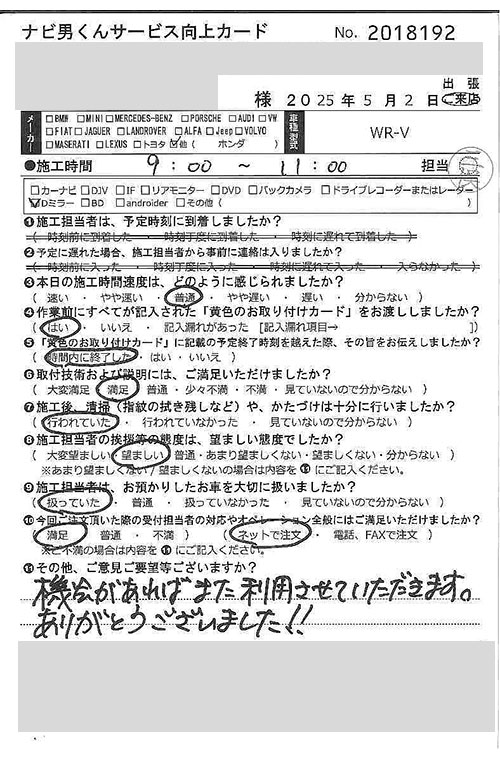 ナビ男くんサービス向上カード No. 2018192
様 2025年5月2日 出張 ご来店
メーカー □BMW □MINI □MERCEDES-BENZ □PORSCHE □AUDI □VW
□FIAT □JAGUER □LANDROVER □ALFA □Jeep □VOLVO
□MASERATI □LEXUS □トヨタ ☑他( ホンダ ) 車種/型式 WR-V
●施工時間 9:00 ~ 11:00 担当
□カーナビ □DJV □IF □リアモニター □DVD □バックカメラ □ドライブレコーダーまたはレーダー
☑Dミラー □BD □androider □その他 ( )
❶施工担当者は、予定時刻に到着しましたか?
( 時刻前に到着した ・ 時刻丁度に到着した ・ 時刻に遅れて到着した )
❷予定に遅れた場合、施工担当者から事前に連絡は入りましたか?
( 時刻前に入った ・ 時刻丁度に入った ・ 時刻に遅れて入った ・ 入らなかった )
❸本日の施工時間速度は、どのように感じられましたか?
( 速い ・ やや速い ・ 普通 ・ やや遅い ・ 遅い ・ 分からない )
❹作業前にすべてが記入された「黄色のお取り付けカード」をお渡ししましたか?
( はい ・ いいえ ・ 記入漏れがあった [記入漏れ項目→ ])
❺「黄色のお取り付けカード」に記載の予定終了時刻を越えた際、その旨をお伝えしましたか?
( 時間内に終了した ・ はい ・ いいえ )
❻取付技術および説明には、ご満足いただけましたか?
( 大変満足 ・ 満足 ・ 普通 ・ 少々不満 ・ 不満 ・ 見ていないので分からない )
❼施工後、清掃(指紋の拭き残しなど)や、かたづけは十分に行いましたか?
( 行われていた ・ 行われていなかった ・ 見ていないので分からない )
❽施工担当者の挨拶等の態度は、望ましい態度でしたか?
( 大変望ましい ・ 望ましい ・ 普通 ・ あまり望ましくない ・ 望ましくない ・ 分からない )
※あまり望ましくない/望ましくないの場合は内容を⓫にご記入ください。
❾施工担当者は、お預かりしたお車を大切に扱いましたか?
( 扱っていた ・ 普通 ・ 扱っていなかった ・ 見ていないので分からない )
❿今回ご注文頂いた際の受付担当者の対応やオペレーション全般にはご満足いただけましたか?
( 満足 ・ 普通 ・ 不満 ) ( ネットで注文 ・ 電話、FAXで注文 )
※ご不満の場合は内容を⓫にご記入ください。
⓫その他、ご意見ご要望等ございますか?
機会があればまた利用させていただきます。
ありがとうございました!!